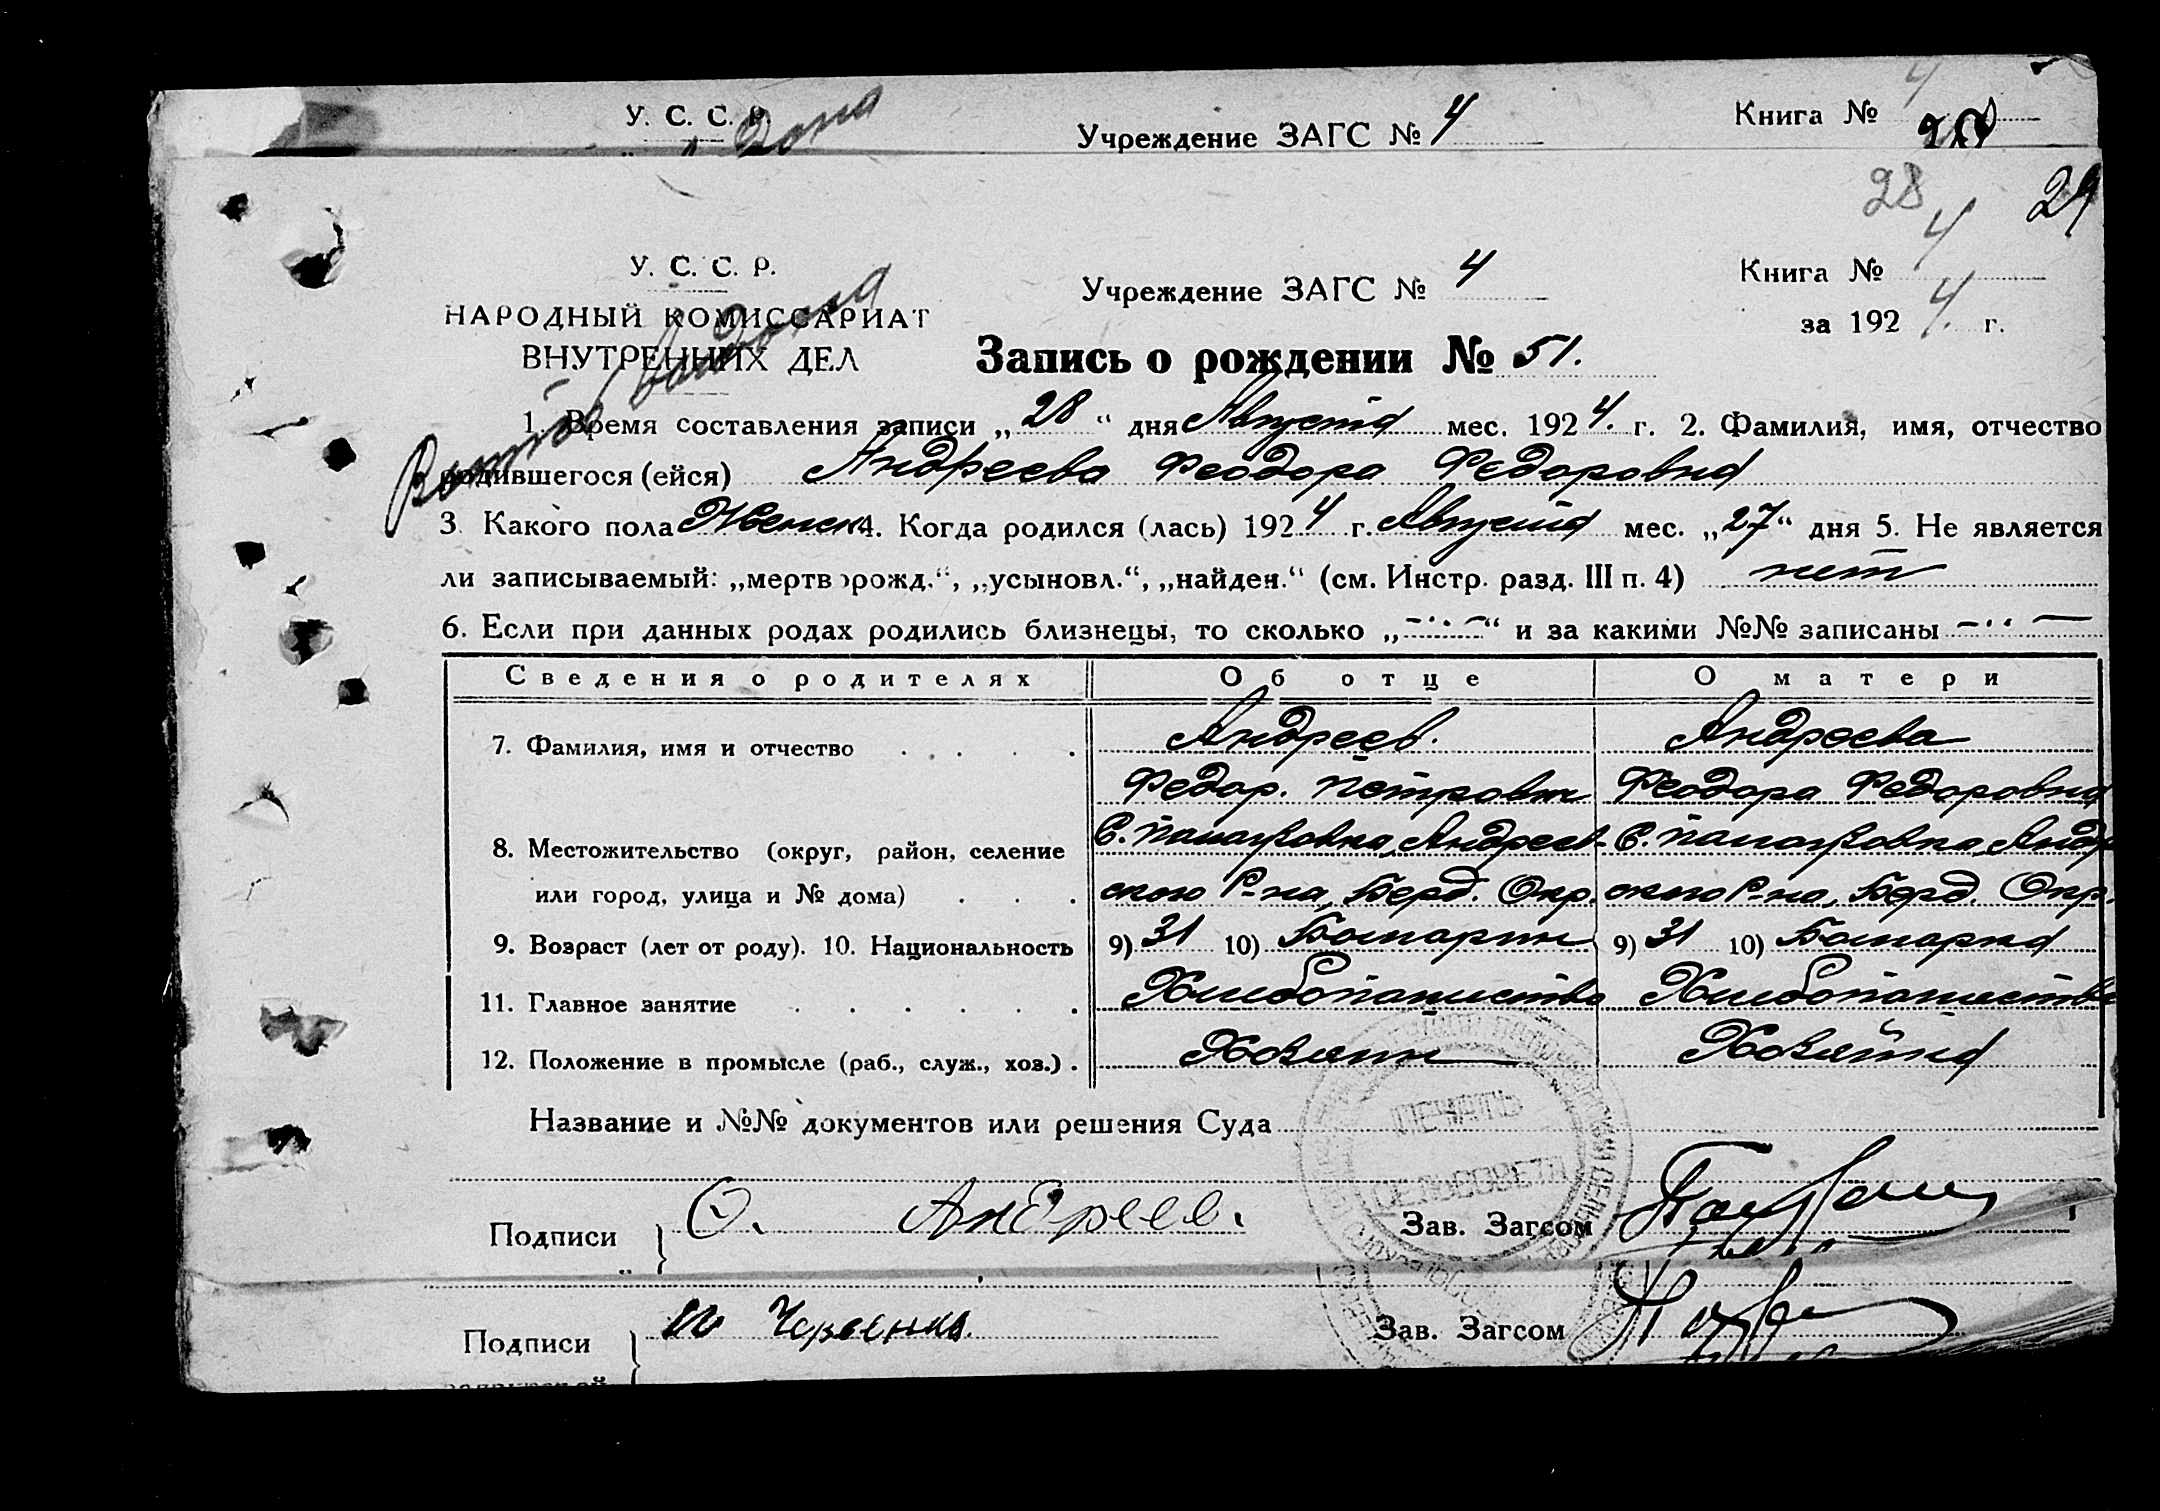 У. С. С. Р.
Учреждение ЗАГС № 4
Книга № 4
28 29
У. С. С. Р.
Учреждение ЗАГС № 4
Книга № 4
НАРОДНЫЙ КОМИССАРИАТ
за 1924 г.
ВНУТРЕННИХ ДЕЛ
Запись о рождении № 51.
1. Время составления записи „28“ дня Августа мес. 1924. г. 2. Фамилия, имя, отчество
родившегося (ейся) Андреева Феодора Федоровна
3. Какого пола Женск 4. Когда родился (лась) 1924 г. Августа мес. „27“ дня 5. Не является
ли записываемый: „мертворожд.“, „усыновл.“, „найден.“ (см. Инстр. разд. III п. 4) нет
6. Если при данных родах родились близнецы, то сколько „-..-“ и за какими №№ записаны -..-
Сведения о родителях Об отце О матери
7. Фамилия, имя и отчество . . . . Андреев. Андреева
Федор. Петрович Феодора Федоровна
8. Местожительство (округ, район, селение
или город, улица и № дома) . . . ского Р-на, Берд. Окр. ского Р-на, Берд. Окр.
9. Возраст (лет от роду). 10. Национальность 9) 31 10) Болгарин 9) 31 10) Болгарка
11. Главное занятие . . . . . . Хлебопашество Хлебопашество
12. Положение в промысле (раб., служ., хоз.) . Хозяин Хозяйка
Название и №№ документов или решения Суда
ПЕЧАТЬ
СЕЛЬСОВЕТА
Подписи } Андреев. Зав. Загсом
Подписи } Зав. Загсом